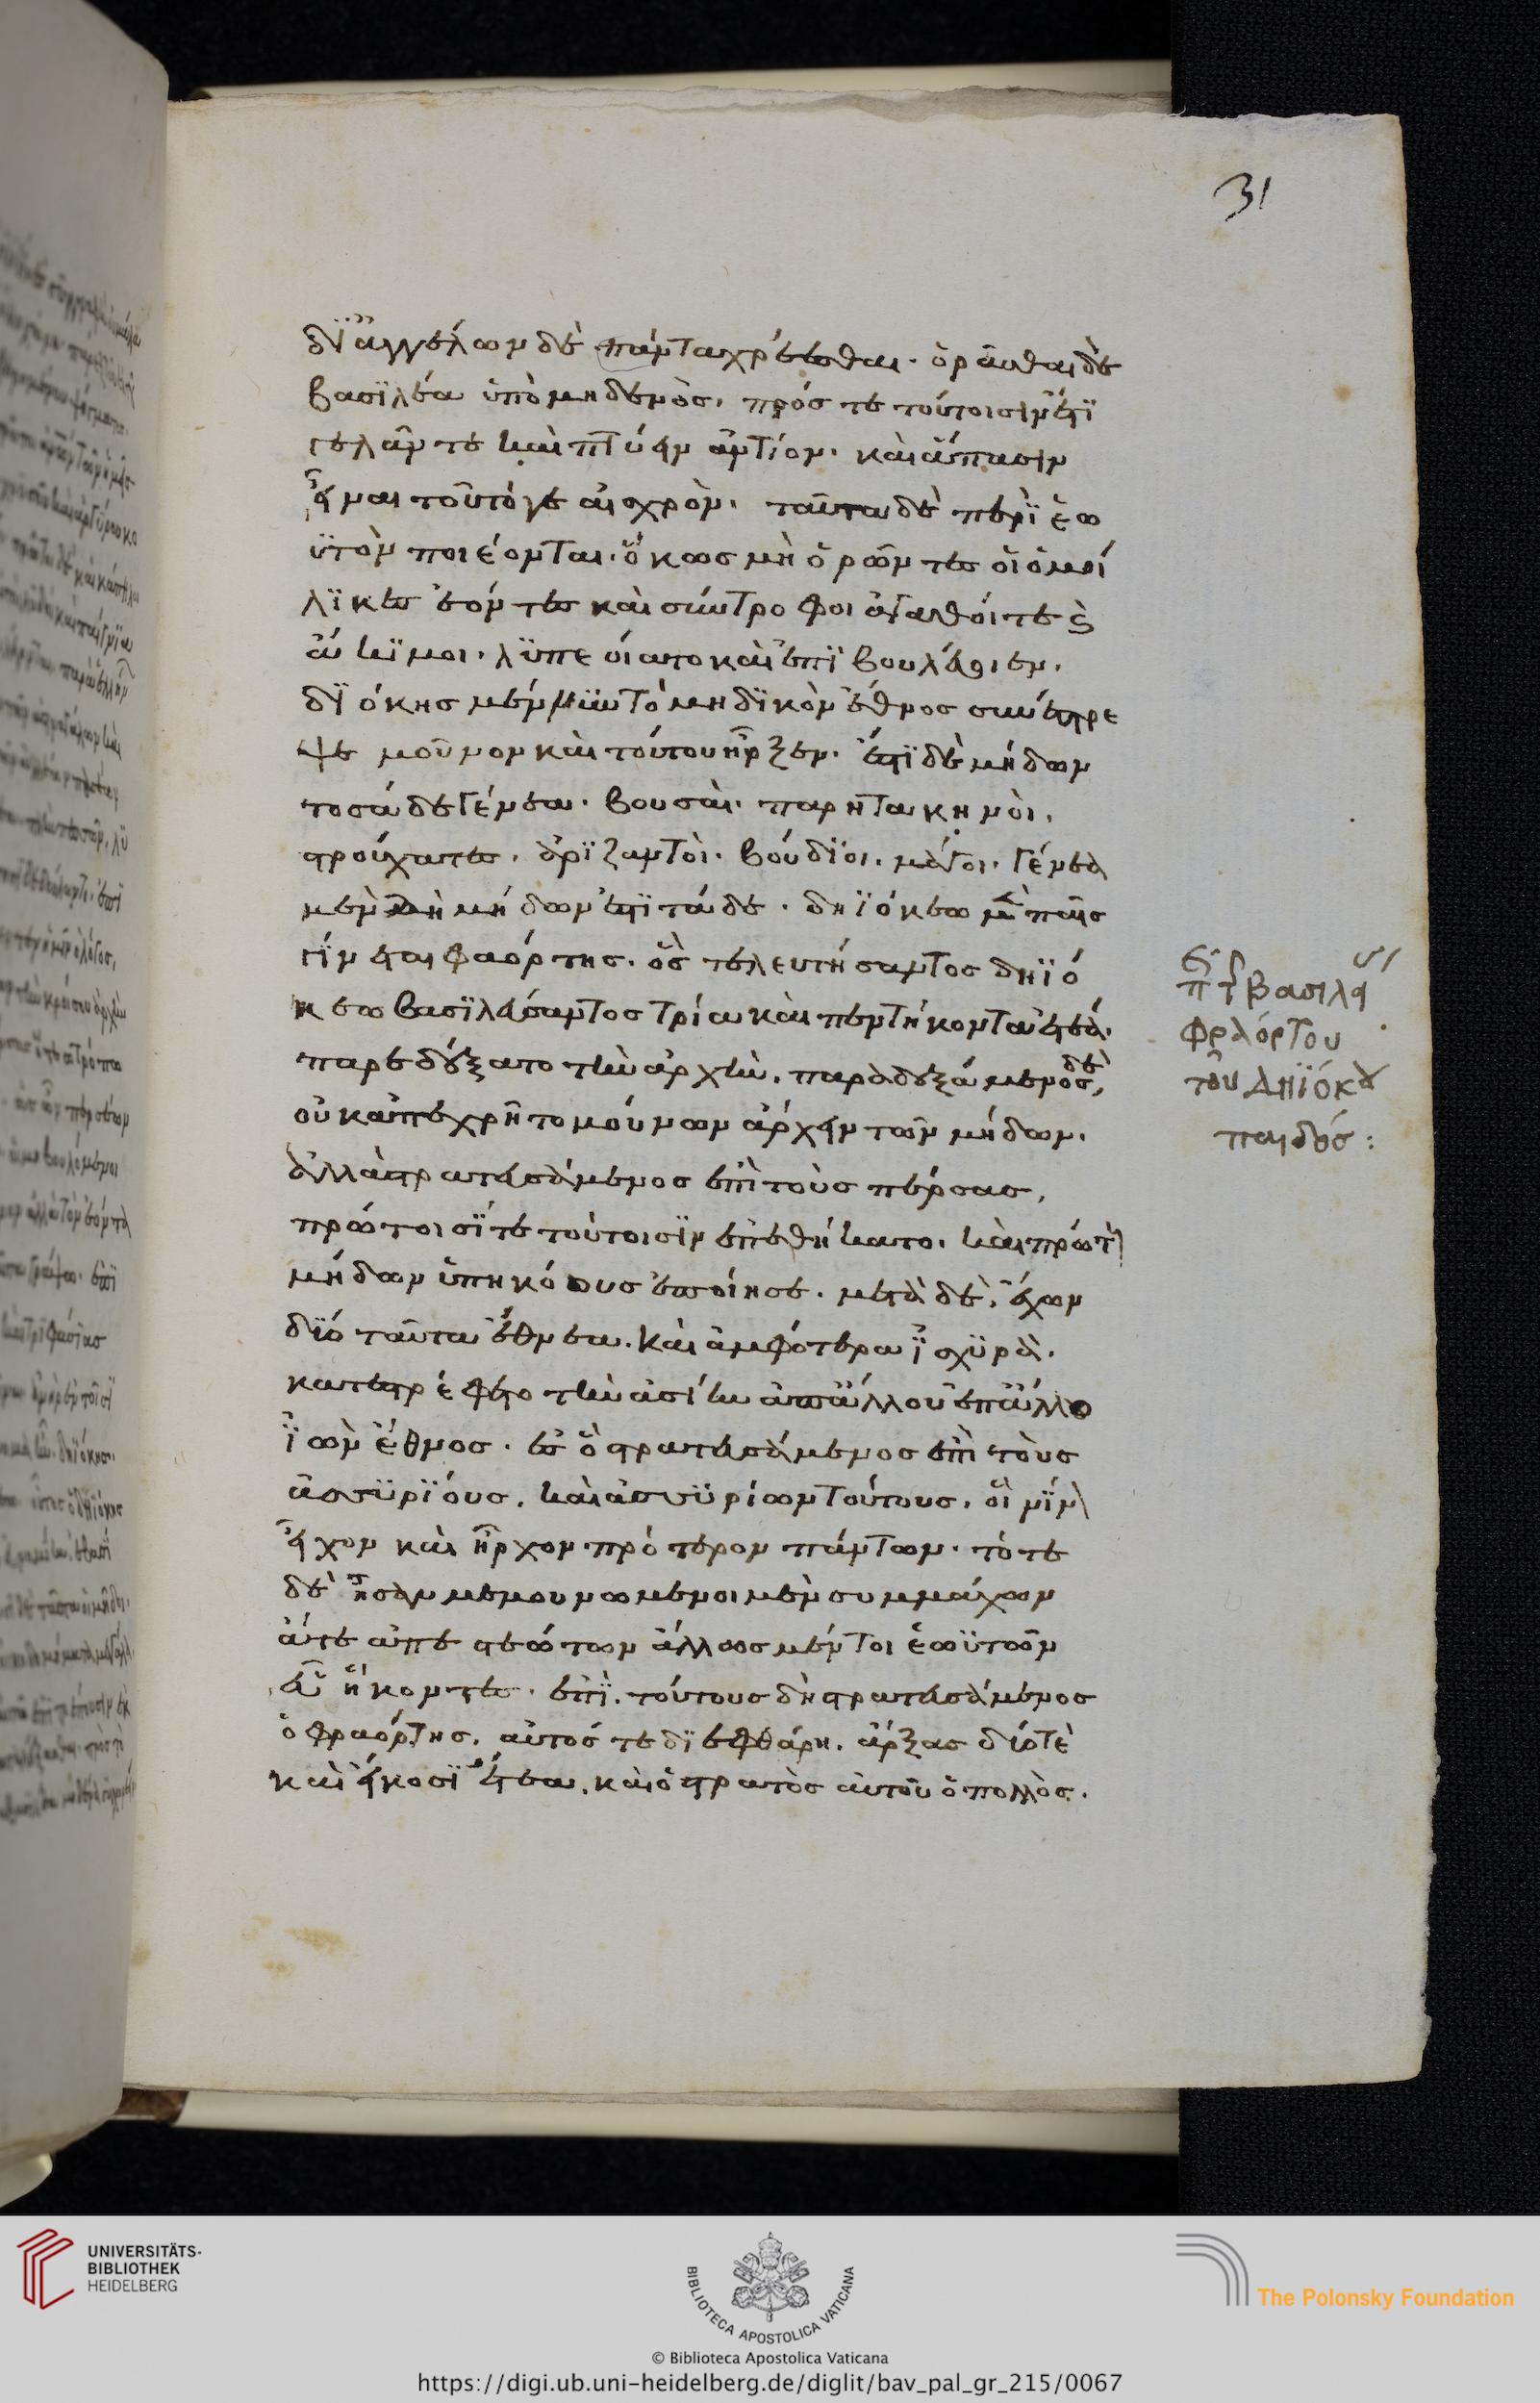 31
δι' ἀγγέλων δὲ πάντα χρέεσθαι· ὁρᾶσθαι δὲ
βασϊλέα ὑπὸ μηδενὸς, πρός τε τούτοισιν ἔτϊ
γελᾶν τε καὶ πτύειν ἀντίον· καὶ ἅπασιν
εἶναι τοῦτό γε αἰσχρὸν. ταῦτα δὲ περὶ ἑω
ϋτὸν ποιέονται. ὅκως μὴ ὁρῶντες οἱ ὁμή
λϊκες ἐόντες καὶ σύντροφοι ἀγαθοί τε ἐς
ἀν
λϋπεοίατο καὶ ἐπϊβουλεύοιεν.
δϊόκης μέν νϋν τὸ μηδϊκὸν ἔθνος συνέστρε
ψε μοῦνον καὶ τούτου ἦρξεν. ἔστϊ δὲ μήδων
τοσάδε γένεα. βουσαὶ. παρητακηνοὶ.
στρούχατες. ἀρϊζαντοὶ. βούδϊοι. μάγοι. γένεα
μὲν δὴ μήδων ἐστϊ τάδε. δηϊόκεω δὲ παῖς
γίνεται φαόρτης. ὃς τελευτήσαντος δηϊό
κεω βασϊλεύσαντος τρία καὶ πεντήκοντα ἔτεα.
παρεδέξατο τὴν ἀρχὴν. παραδεξάμενος δὲ,
οὐκ ἀπεχρῆτο μούνων ἄρχειν τῶν μήδων.
ἀλλὰ στρατευσάμενος ἐπὶ τοὺς πέρσας,
πρώτοισϊ τε τούτοισϊν ἐπεθήκατο. καὶ πρώτ
μήδων ὑπηκόους ἐποίησε. μετὰ δὲ, ἔχων
δϋο ταῦτα ἔθνεα. καὶ ἀμφότερα ἰσχϋρὰ.
κατεστρέφετο τὴν ἀσίην ἀπ' ἄλλου ἐπ' ἄλλο
ἰὼν ἔθνος. ἐς ὃ στρατευσάμενος ἐπὶ τοὺς
ἀσσϋρϊους. καὶ ἀσσϋρίων τούτους, οἳ νῖν
εἶχον καὶ ἦρχον πρότερον πάντων. τότε
δὲ ἦσαν μεμουνωμένοι μὲν συμμάχων
ἅτε ἀπεστεώτων ἄλλως μέντοι ἑωϋτῶν
εὖ ἥκοντες. ἐπϊ τούτους δὴ στρατευσάμενος
ὁ φραόρτης. αὐτός τε δϊεφθάρη. ἄρξας δύό τὲ
καὶ εἴκοσϊ ἔτεα. καὶ ὁ στρατὸς αὐτοῦ ὁ πολλὸς.
βασιλεί
φραόρτου
τοῦ Δηϊόκου
παιδός:
UNIVERSITÄTS-
BIBLIOTHEK
HEIDELBERG
BIBLIOTECA APOSTOLICA VATICANA
The Polonsky Foundation
© Biblioteca Apostolica Vaticana
https://digi.ub.uni-heidelberg.de/diglit/bav_pal_gr_215/0067